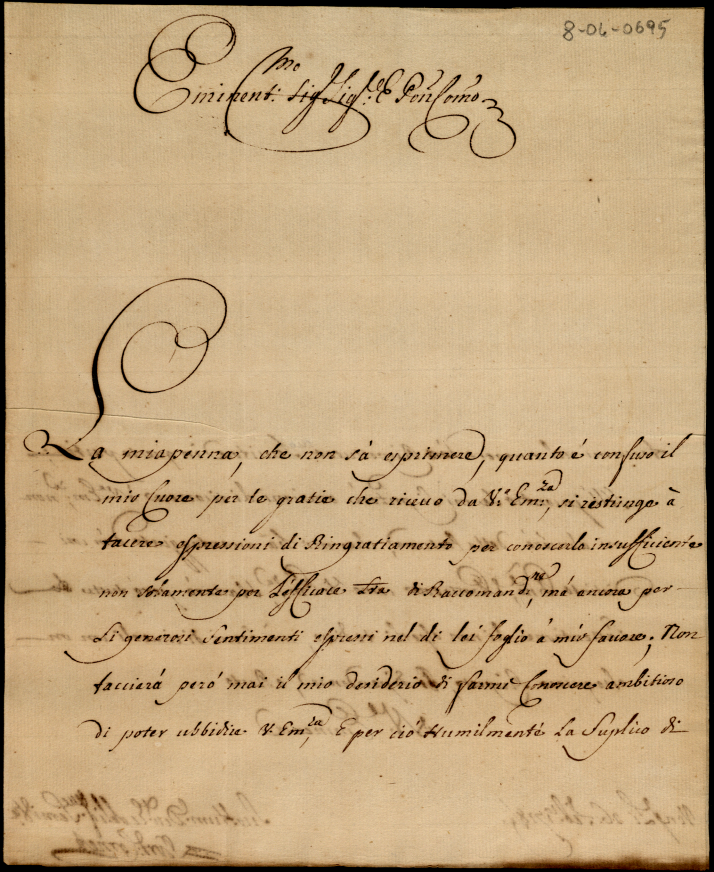 8-06-0695
Eminent.mo Sig.r Sig.r E Pon Como
La mia penna, che non sà esprimere, quanto é confuso il
mio Cuore per le gratie che riceuo da V.a Em.za, si restringe à
tacere espressioni di Ringratiamento per conoscerlo insufficiente
non solamente per L'efficace Lra di Raccomand.ne, má ancora per
Li generosi Sentimenti espressi nel di lei foglio á mio fauore; Non
taccierá peró mai il mio desiderio di farmi Conoscere ambitioso
di poter ubbidire V. Em.za, E per ció Humilmente La Suplico di